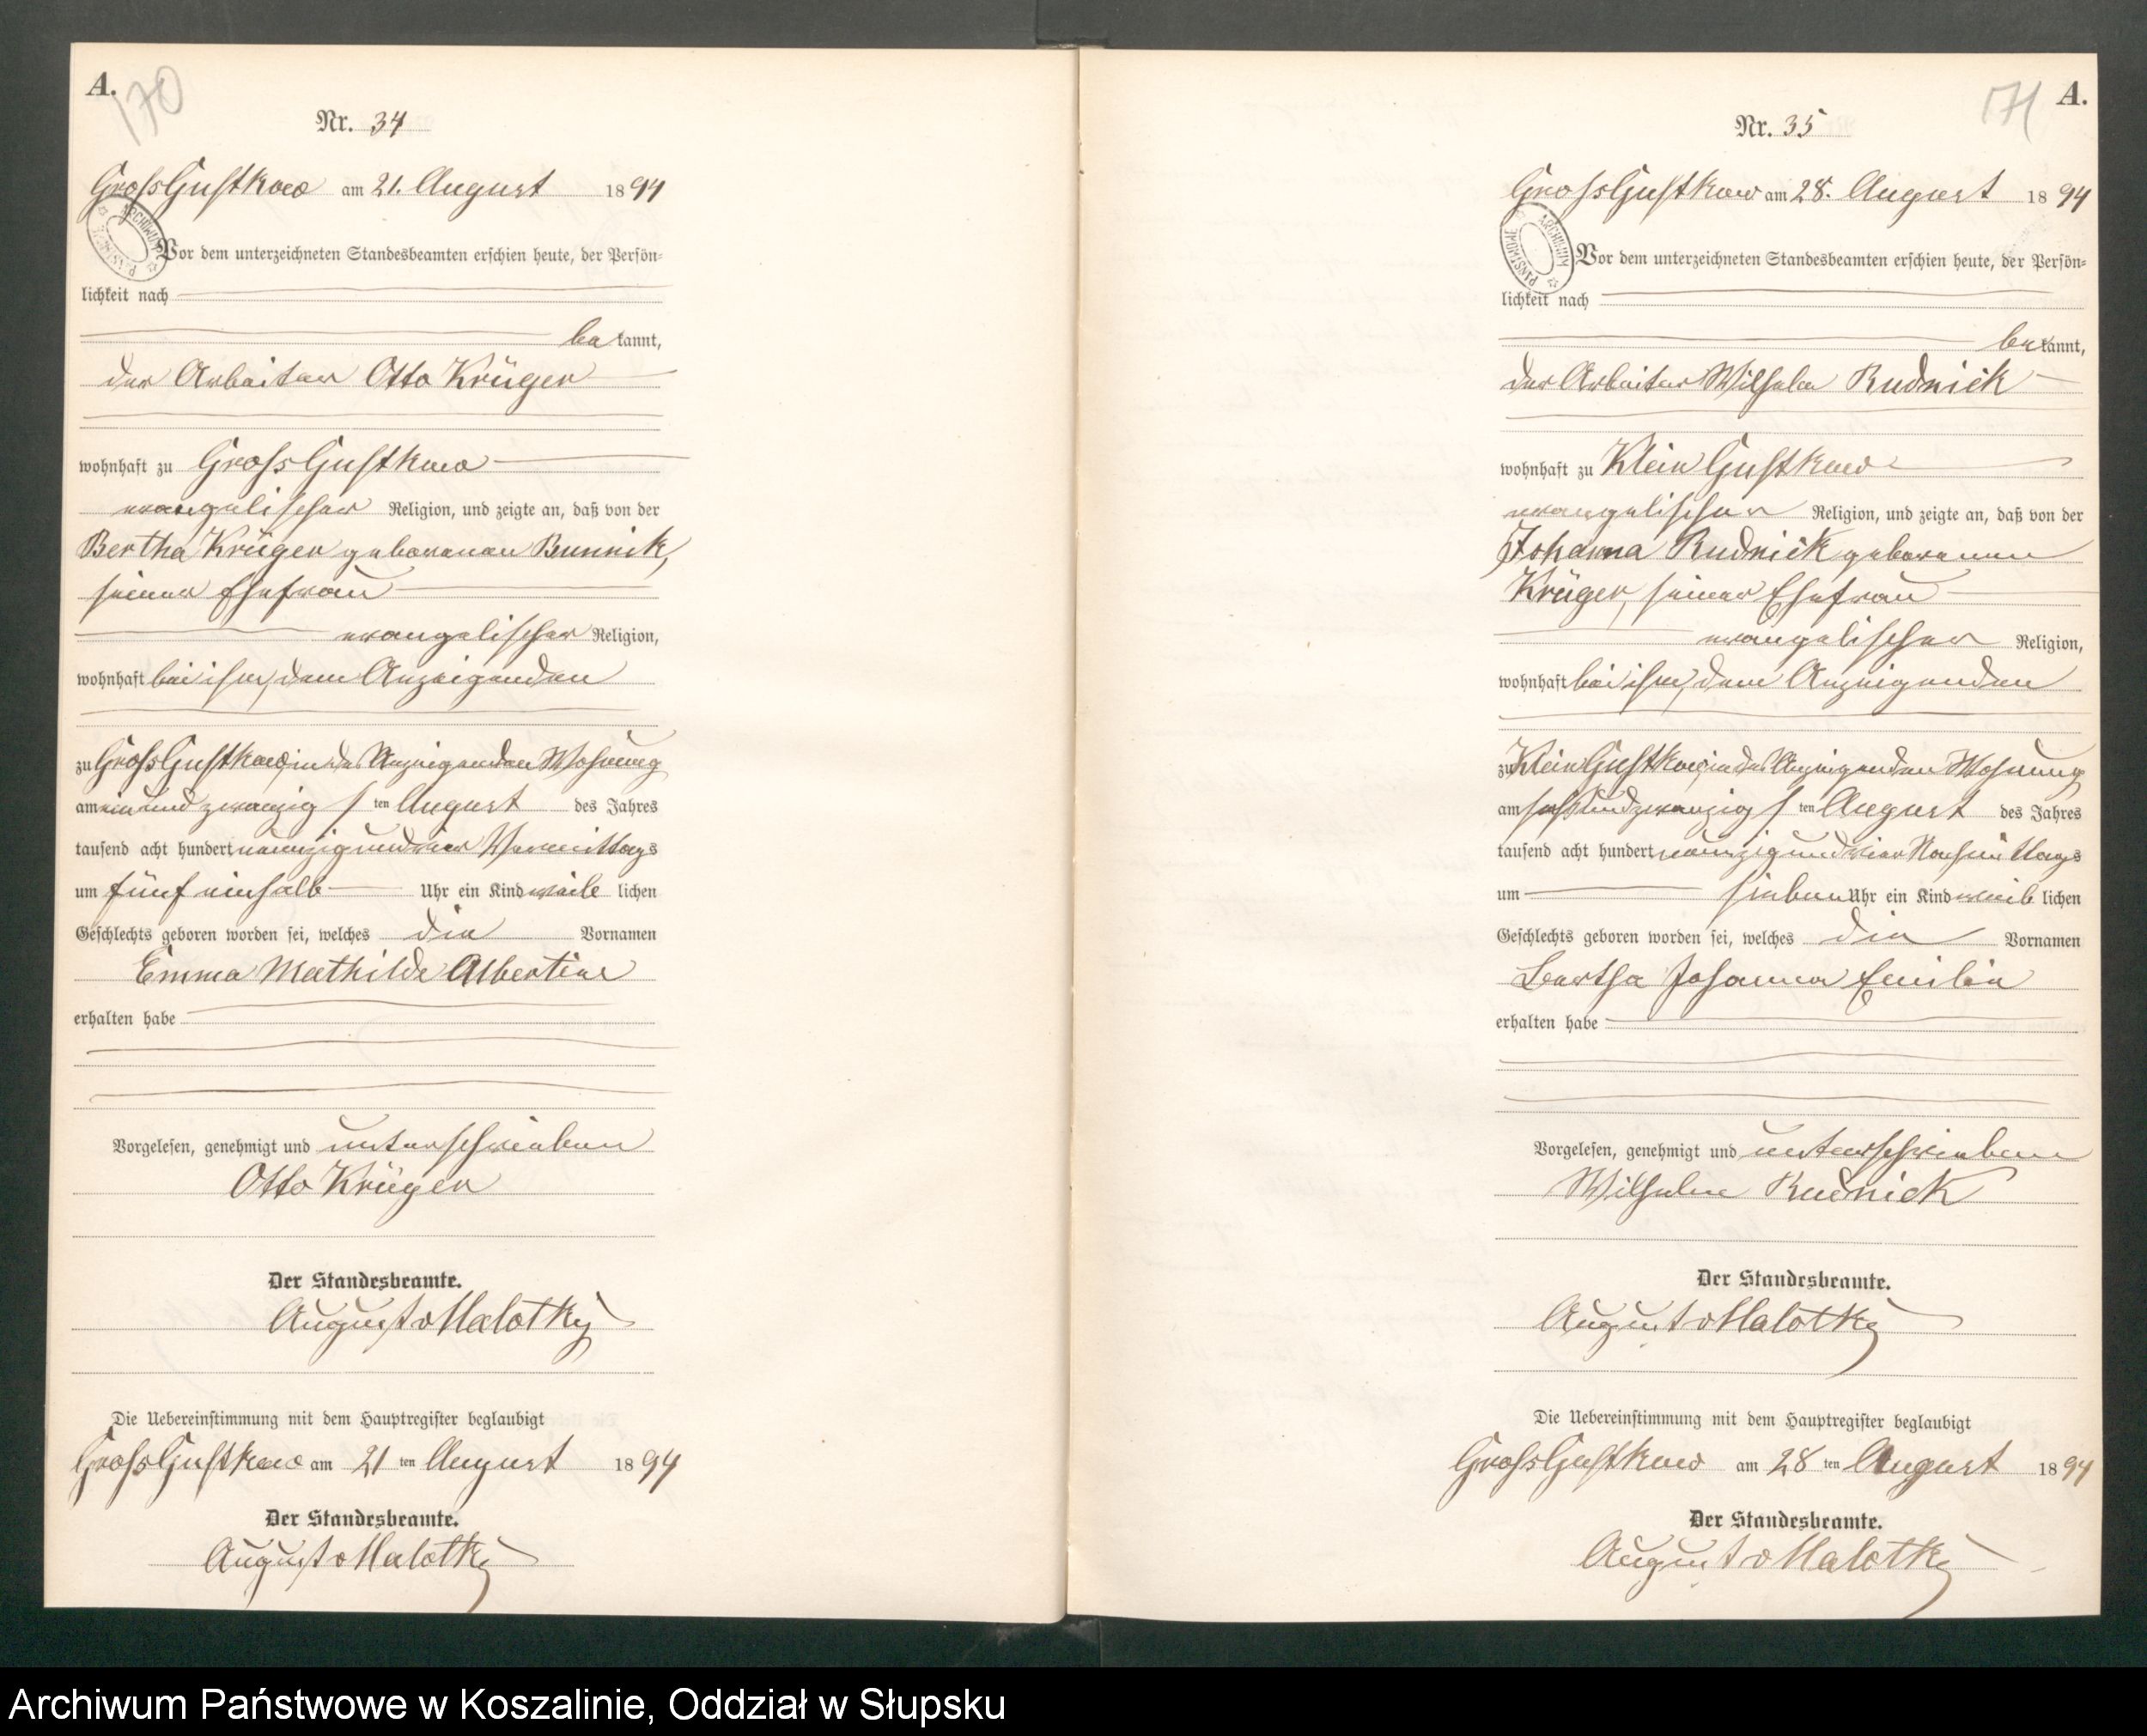 A.
170
Nr. 34
Gross Gustkow am 21. August 1894
ARCHIWUM PAŃSTWOWE
Vor dem unterzeichneten Standesbeamten erschien heute, der Persön-
lichkeit nach
be kannt,
der Arbeiter Otto Krüger
wohnhaft zu Gross Gustkow
evangelischer Religion, und zeigte an, daß von der
Bertha Krüger geborenen Bunnik,
seiner Ehefrau
evangelischer Religion,
wohnhaft bei ihm, dem Anzeigenden
zu Gross Gustkow, in des Anzeigenden Wohnung
am ein und zwanzig sten August des Jahres
tausend acht hundert neunzig und vier Vormittags
um fünf einhalb Uhr ein Kind weib lichen
Geschlechts geboren worden sei, welches die Vornamen
Emma Mathilde Albertine
erhalten habe
Vorgelesen, genehmigt und unterschrieben
Otto Krüger
Der Standesbeamte.
August v Malotky
Die Uebereinstimmung mit dem Hauptregister beglaubigt
Gross Gustkow am 21 ten August 1894
Der Standesbeamte.
August v Malotky
171
A.
Nr. 35
Gross Gustkow am 28. August 1894
ARCHIWUM PAŃSTWOWE
Vor dem unterzeichneten Standesbeamten erschien heute, der Persön-
lichkeit nach
be kannt,
der Arbeiter Wilhelm Rudnick
wohnhaft zu Klein Gustkow
evangelischer Religion, und zeigte an, daß von der
Johanna Rudnick geborenen
Krüger, seiner Ehefrau
evangelischer Religion,
wohnhaft bei ihm, dem Anzeigenden
zu Klein Gustkow, in des Anzeigenden Wohnung
am sechs und zwanzig sten August des Jahres
tausend acht hundert neunzig und vier Nachmittags
um sieben Uhr ein Kind weib lichen
Geschlechts geboren worden sei, welches die Vornamen
Bertha Johanna Emilie
erhalten habe
Vorgelesen, genehmigt und unterschrieben
Wilhelm Rudnick
Der Standesbeamte.
August v Malotky
Die Uebereinstimmung mit dem Hauptregister beglaubigt
Gross Gustkow am 28 ten August 1894
Der Standesbeamte.
August v Malotky
Archiwum Państwowe w Koszalinie, Oddział w Słupsku